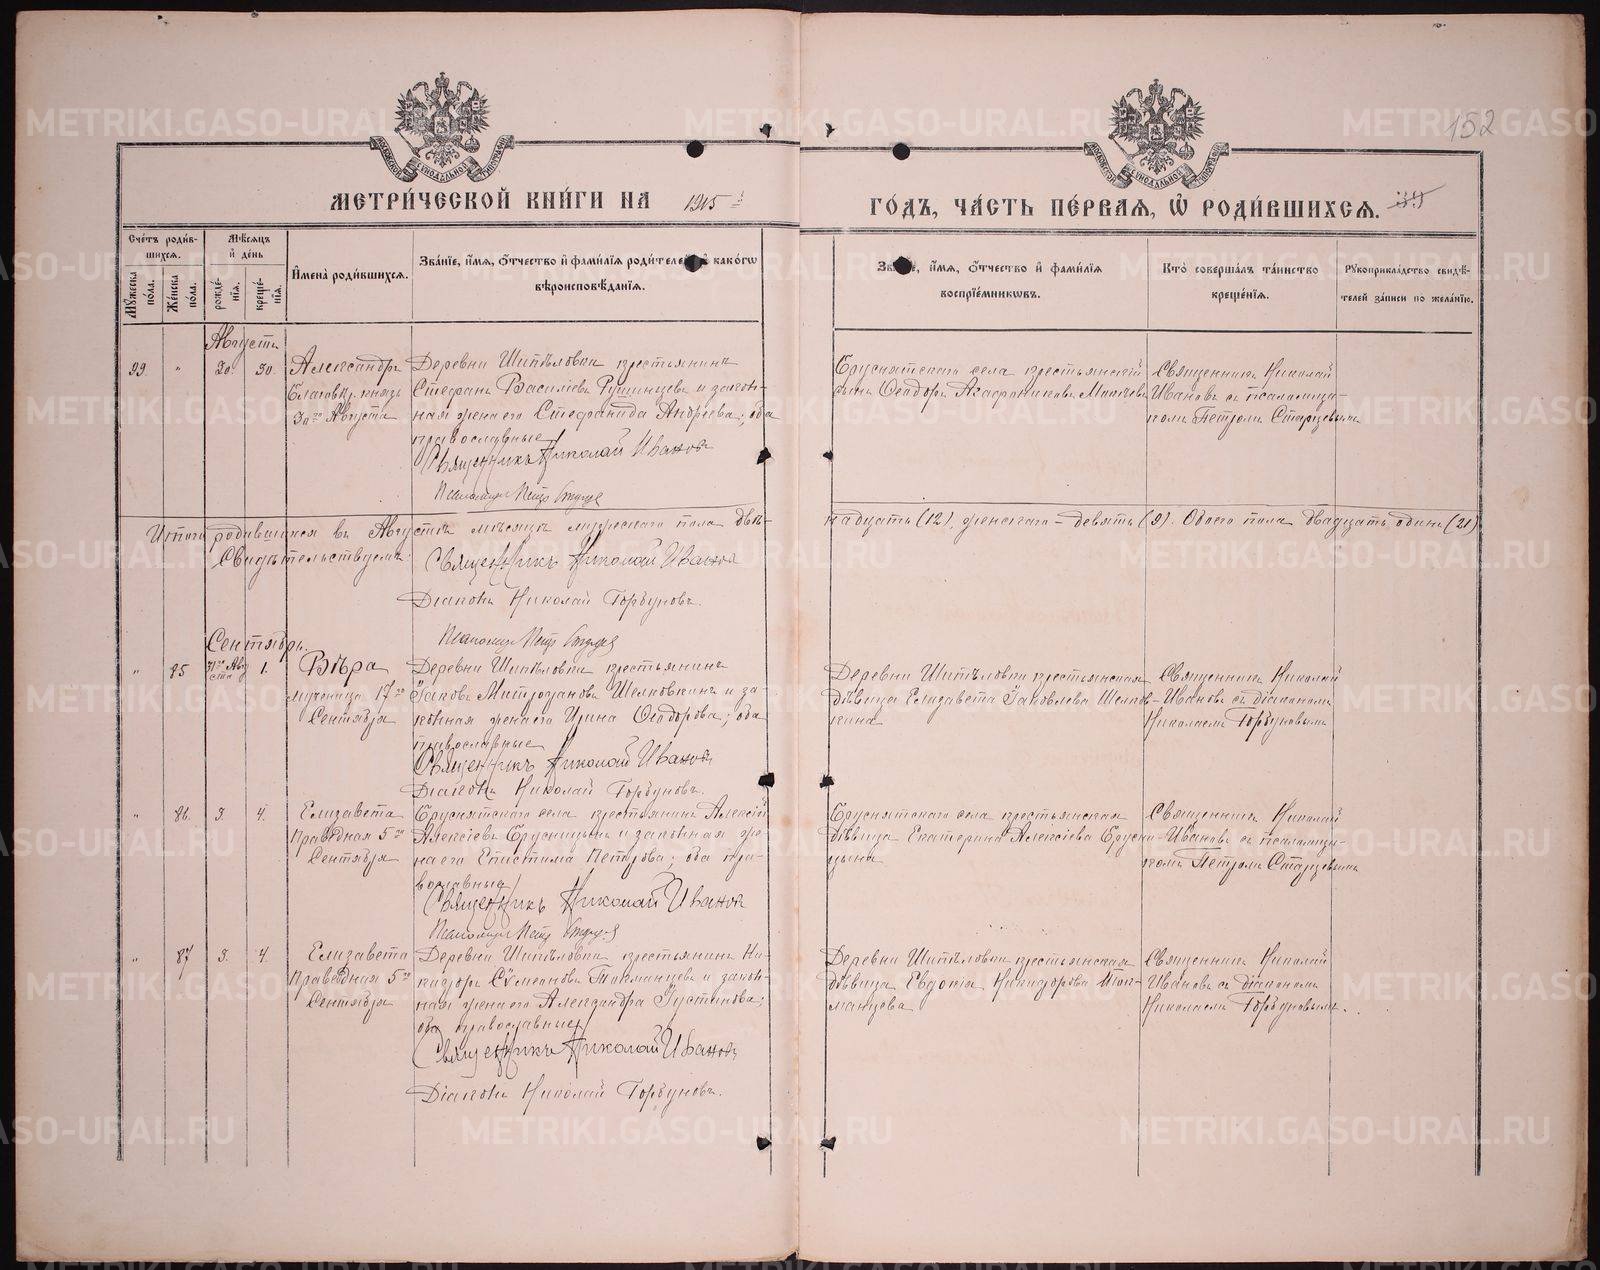 152
МЕТРИ́ЧЕСКОЙ КНИ́ГИ НА 1915 й
ГО́ДЪ, ЧА́СТЬ ПЕ́РВАЯ, Ѡ РОДИ́ВШИХСѦ.
Сче́тъ роди́в-
шихсѧ.
Мѣ́сѧцъ
и҆ де́нь
Му́жеска по́ла.
Же́нска по́ла.
рожде́-нїѧ.
креще́-нїѧ.
И҆мена̀ роди́вшихсѧ.
Зва́нїе, и҆́мѧ, ѻ҆́тчество и҆ фами́лїѧ роди́телей и҆ како́гѡ
вѣроисповѣ́данїѧ.
и҆́мѧ, ѻ҆́тчество и҆ фами́лїѧ
воспрїе́мникѡвъ.
Кто̀ соверша́лъ та́инство
креще́нїѧ.
Рꙋкоприкла́дство свидѣ́-
телей за́писи по жела́нїю.
Августъ
99. " 20. 30. Александръ
Благовѣр. князь
30го Августа
Деревни Шипѣловки крестьянинъ
Стефанъ Василіевъ и закон-
ная жена его Стефанида Андреева; оба
православные
Священникъ Николай Ивановъ
Псаломщ. Петр Старцев
Бруснятскаго села крестьянскій
сынъ Ѳеодоръ
Священникъ Николай
Ивановъ съ псаломщи-
комъ Петромъ Старцевымъ
Итого родившихся въ Августѣ мѣсяцѣ мужескаго пола двѣ-
надцать (12), женскаго – девять (9). Обоего пола двадцать одинъ (21)
Свидѣтельствуемъ:
Священникъ Николай Ивановъ
Діаконъ Николай Горбуновъ.
Псаломщ. Петр Старцев
Сентябрь.
" 85 31го Авгу
ста 1. Вѣра
мученица 17го
Сентября
Деревни Шипѣловки крестьянинъ
Іаковъ Митрофановъ Шелковкинъ и за-
конная жена его Ирина Ѳеодорова; оба
православные
Священникъ Николай Ивановъ
Діаконъ Николай Горбуновъ.
Деревни Шипѣловки крестьянская
дѣвица Елизавета Іаковлева Шелков-
кина
Священникъ Николай
Ивановъ съ діакономъ
Николаемъ Горбуновымъ
" 86. 3. 4. Елизавета
Праведная 5го
Сентября
Бруснятскаго села крестьянинъ Алексій
Алексіевъ Брусницынъ и законная же-
на его Епистима Петрова; оба пра-
вославные
Священникъ Николай Ивановъ
Псаломщ. Петр Старцев
Бруснятскаго села крестьянская
дѣвица Екатерина Алексіева Брусни-
цына
Священникъ Николай
Ивановъ съ псаломщи-
комъ Петромъ Старцевымъ
" 87 3. 4. Елизавета
Праведная 5го
Сентября
Деревни Шипѣловки крестьянинъ Ни-
кифоръ Сѵмеоновъ Токманцевъ и закон-
ная жена его Александра Іустинова;
оба православные
Священникъ Николай Ивановъ
Діаконъ Николай Горбуновъ.
Деревни Шипѣловки крестьянская
дѣвица Евдокія Никифорова Ток-
манцева
Священникъ Николай
Ивановъ съ діакономъ
Николаемъ Горбуновымъ.
METRIKI.GASO-URAL.RU